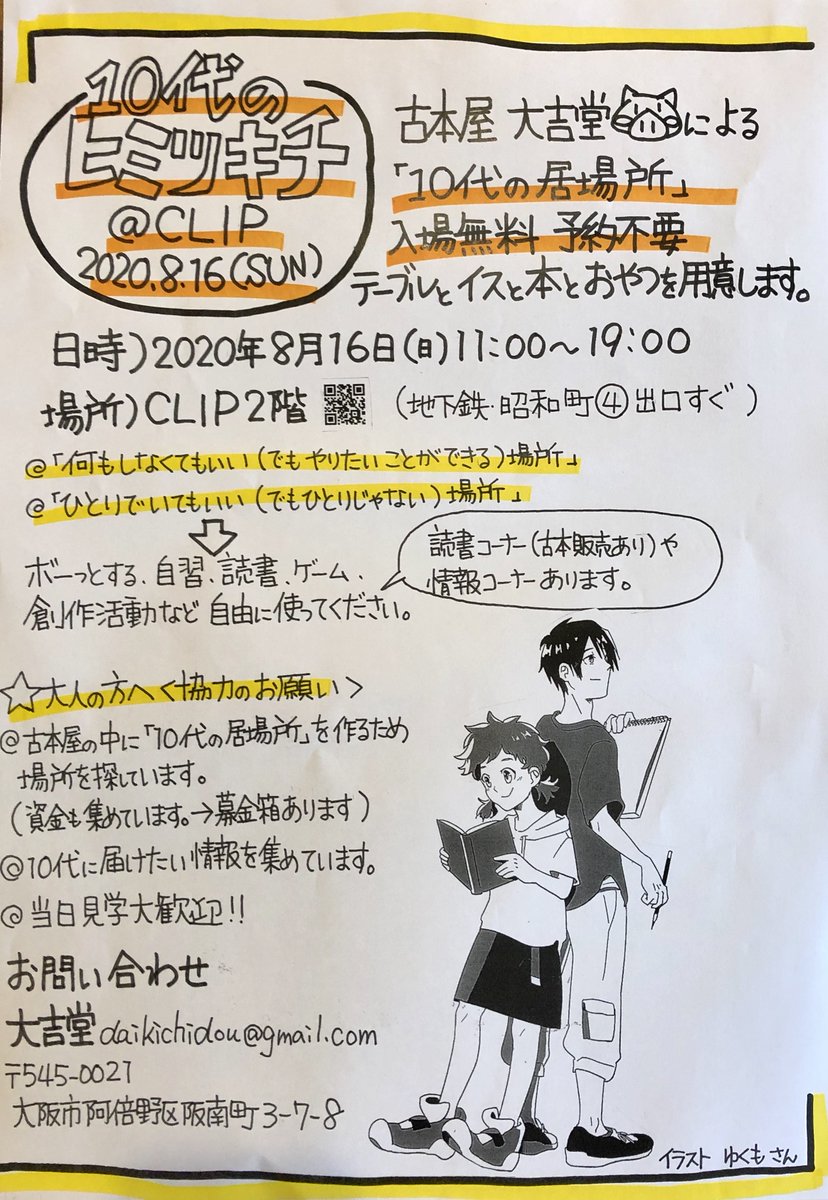 10代の
ヒミツキチ
@CLIP
2020.8.16(SUN)
古本屋 大吉堂による
「10代の居場所」
入場無料 予約不要
テーブルとイスと本とおやつを用意します。
日時)2020年8月16日(日)11:00〜19:00
場所)CLIP2階 (地下鉄・昭和町④出口すぐ)
@「何もしなくてもいい(でもやりたいことができる)場所」
@「ひとりでいてもいい(でもひとりじゃない)場所」
ボーっとする、自習、読書、ゲーム、
創作活動など自由に使ってください。
読書コーナー(古本販売あり)や
情報コーナーあります。
☆大人の方へ<協力のお願い>
@古本屋の中に「10代の居場所」を作るため
場所を探しています。
(資金も集めています。→募金箱あります)
@10代に届けたい情報を集めています。
@当日見学大歓迎!!
お問い合わせ
大吉堂 daikichidou@gmail.com
〒545-0021
大阪市阿倍野区阪南町3-7-8
イラスト ゆくもさん